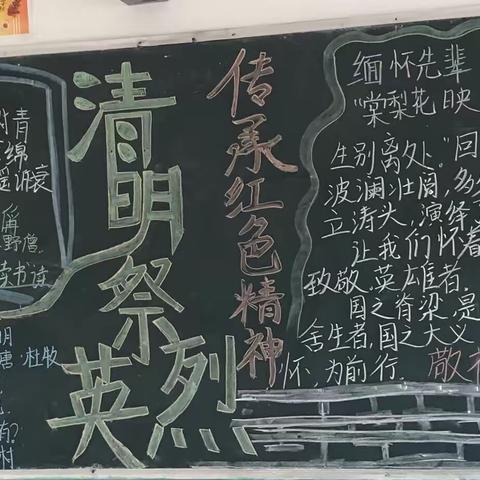 清明祭英烈
传承红色精神
缅怀先辈
"棠梨花映
生别离处。"回
波澜壮阔,多
立涛头,演绎
让我们怀着
致敬.英雄者.
国之脊梁,是
舍生者,国之大义
怀,为前行.
敬
青
绵
野僧.
读书读
明
唐·杜牧
有?
村